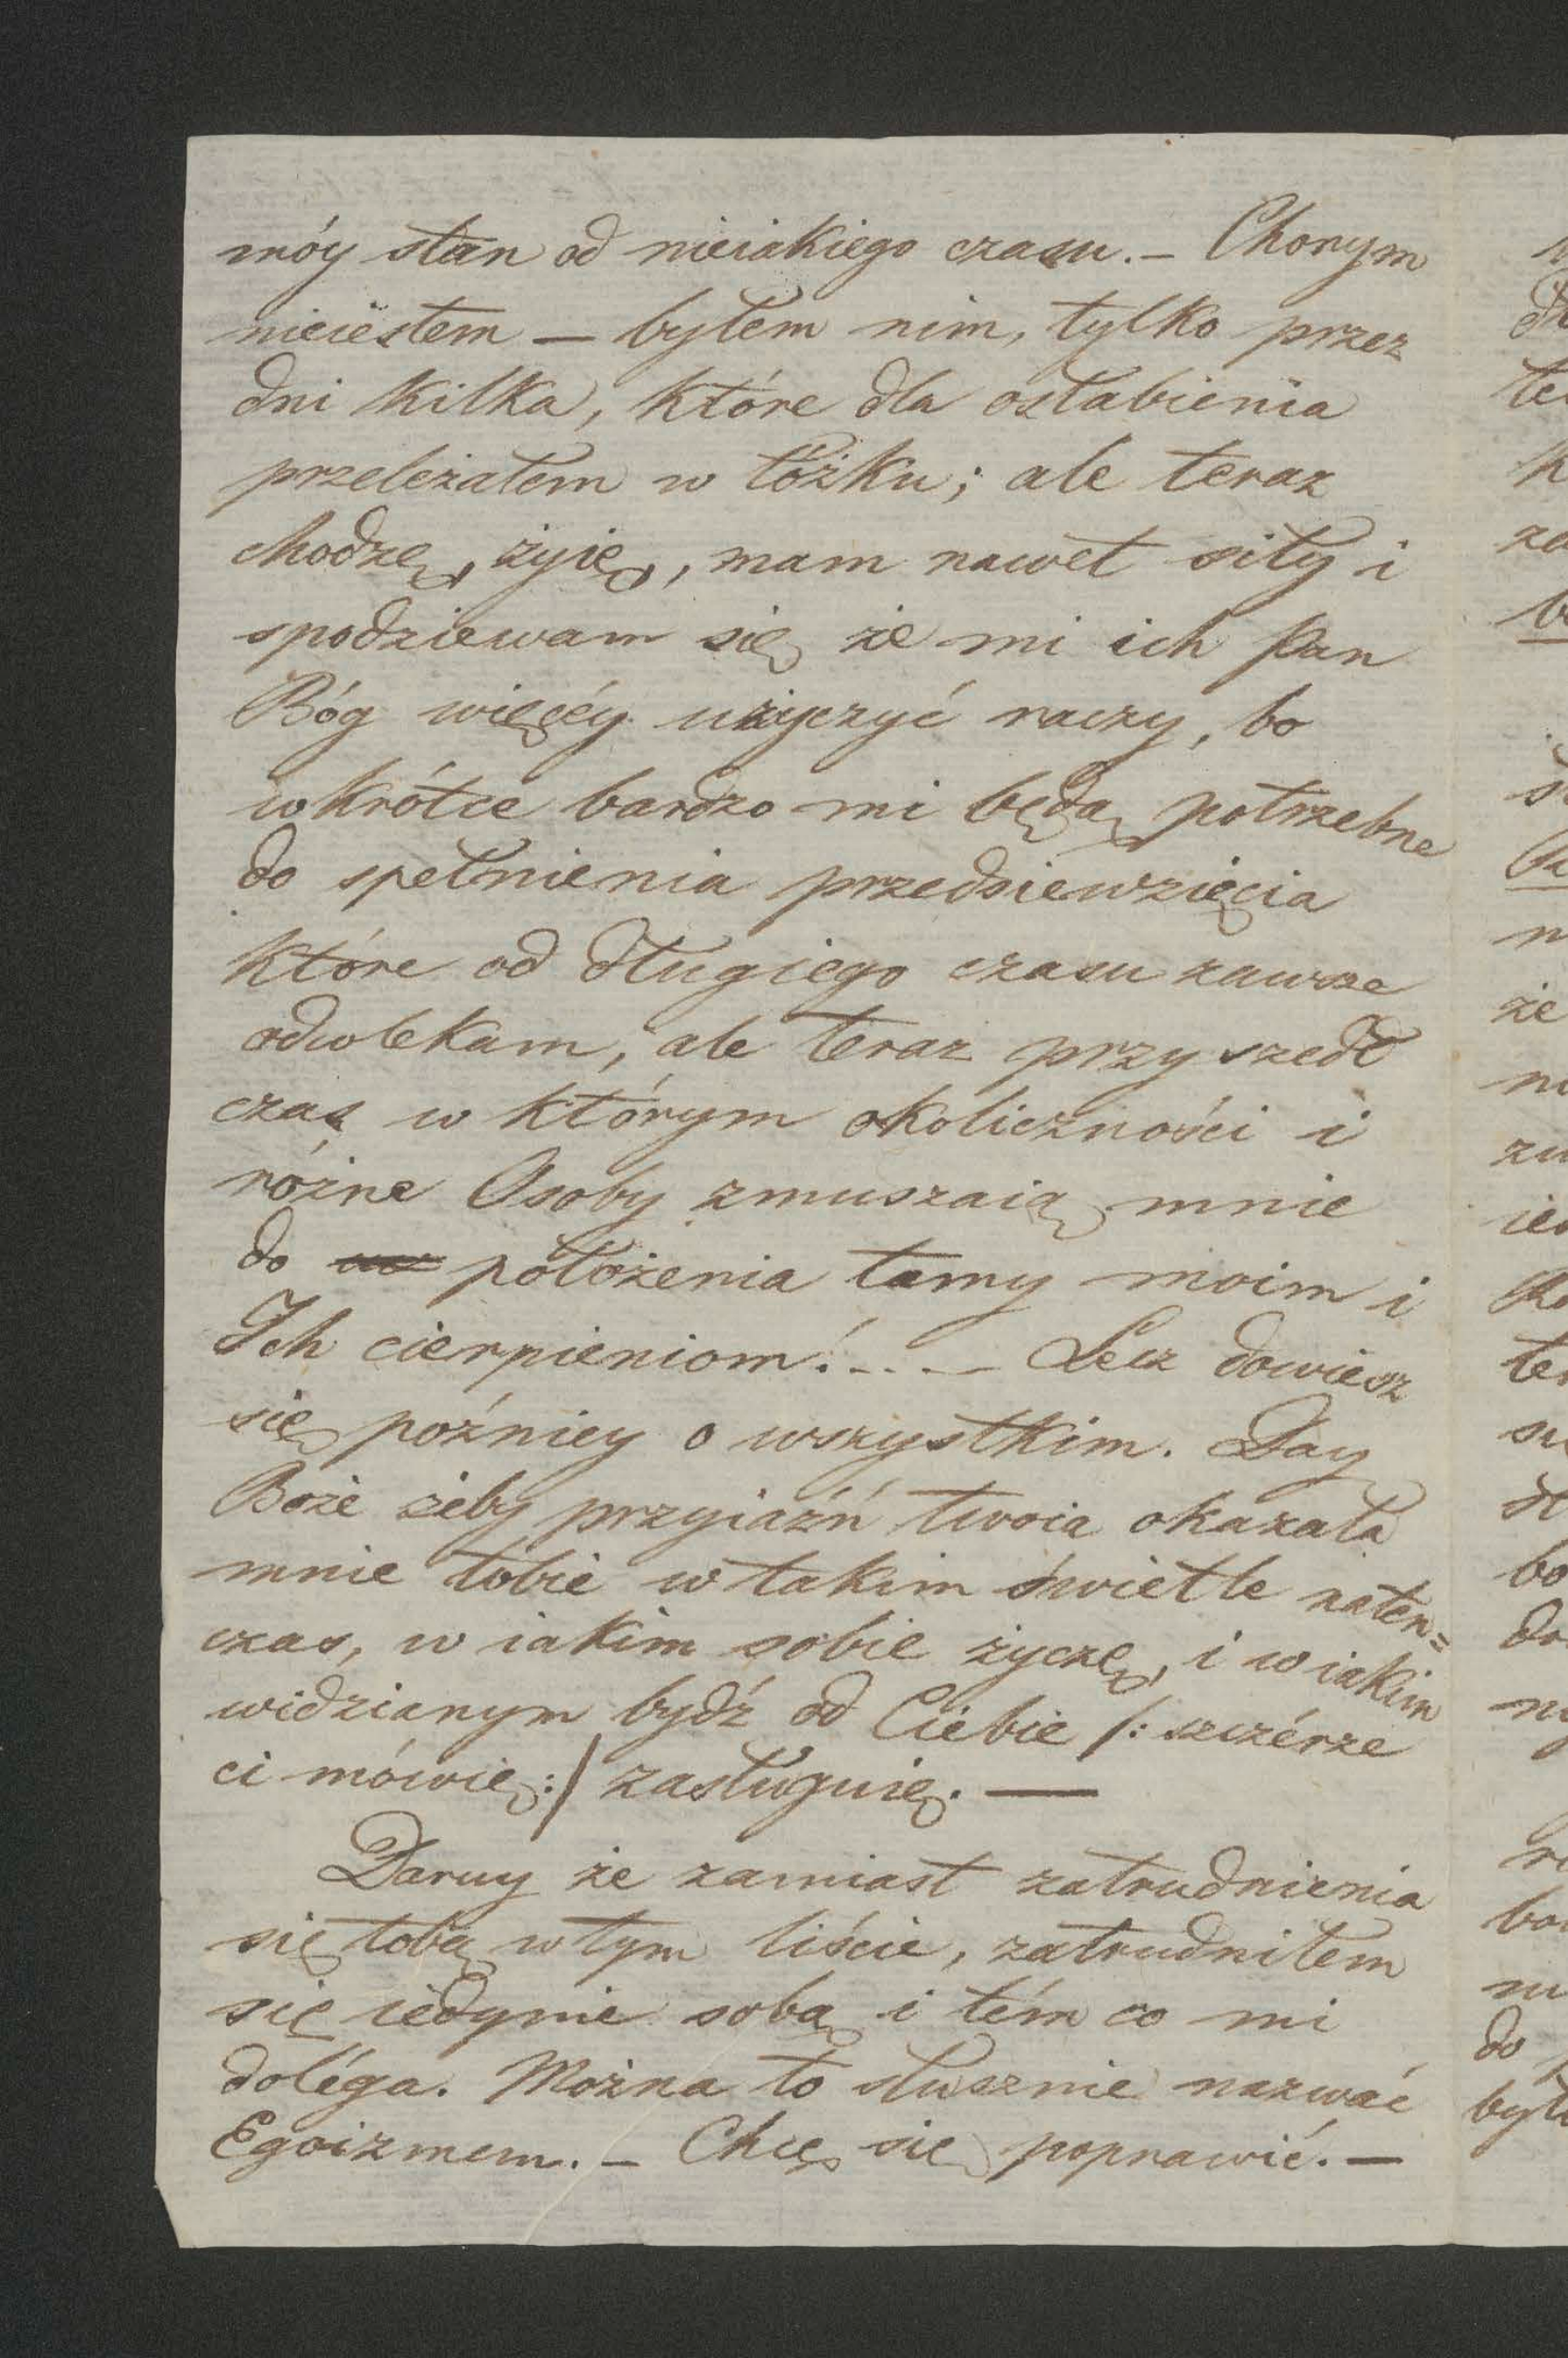 móy stan od nieiakiego czasu. – Chorym
nieiestem – byłem nim, tylko przez
dni kilka, które dla osłabienia
przeleżałem w łóżku; ale teraz
chodzę, żyię, mam nawet siły i
spodziewam się że mi ich Pan
Bóg więcéy użyczyć raczy, bo
wkrótce bardzo mi będą potrzebne
do spełnienia przedsiewzięcia
które od długiego czasu zawsze
odwlekam, ale teraz przyszedł
czas w którym okoliczności i
różne Osoby zmuszaią mnie
do położenia tamy moim i
Ich cierpieniom!... – Lecz dowiesz
się poźniey o wszystkim. Day
Boże żeby przyiaźń twoia okazała
mnie tobie w takim świetle naten=
czas, w iakim sobie życzę, i w iakim
widzianym bydź od Ciebie /: szczérze
ci mówię :/ zasługuię. —
Daruy że zamiast zatrudnienia
się tobą w tym liście, zatrudniłem
się iedynie sobą i tém co mi
doléga. Można to słusznie nazwać
Egoizmem. – Chcę się poprawić. –